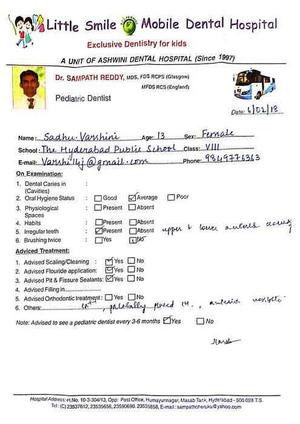 Little Smile Mobile Dental Hospital
Exclusive Dentistry for kids
A UNIT OF ASHWINI DENTAL HOSPITAL (Since 1997)
Dr. SAMPATH REDDY, MDS, FDS RCPS (Glasgow)
MFDS RCS (England)
Pediatric Dentist
Date: 6/02/18
Name: Sadhu Varshini Age: 13 Sex: Female
School: The Hyderabad Public School Class: VIII
E-mail: @gmail.com Phone:
On Examination:
1. Dental Caries in :
(Cavities)
2. Oral Hygiene Status : Good Average Poor
3. Physiological : Present Absent
Spaces
4. Habits : Present Absent
5. Irregular teeth : Present Absent upper & lower
6. Brushing twice : Yes No
Adviced Treatment:
1. Advised Scaling/Cleaning : Yes No
2. Advised Flouride application: Yes No
3. Advised Pit & Fissure Sealants: Yes No
4. Advised Filling in
5. Advised Orthodontic treatment : Yes No
6. Others:
Note: Advised to see a pediatric dentist every 3-6 months Yes No
Hospital Address: H.No. 10-3-304/13, Opp: Post Office, Humayunnagar, Masab Tank, Hyderabad - 500 028 T.S.